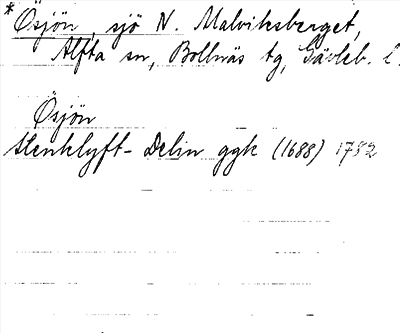 * Ösjön, sjö N. Malviksberget,
Alfta sn, Bollnäs tg, Gävleb. l.
Ösjön
Stenklyft- Delin ggk (1688) 1752